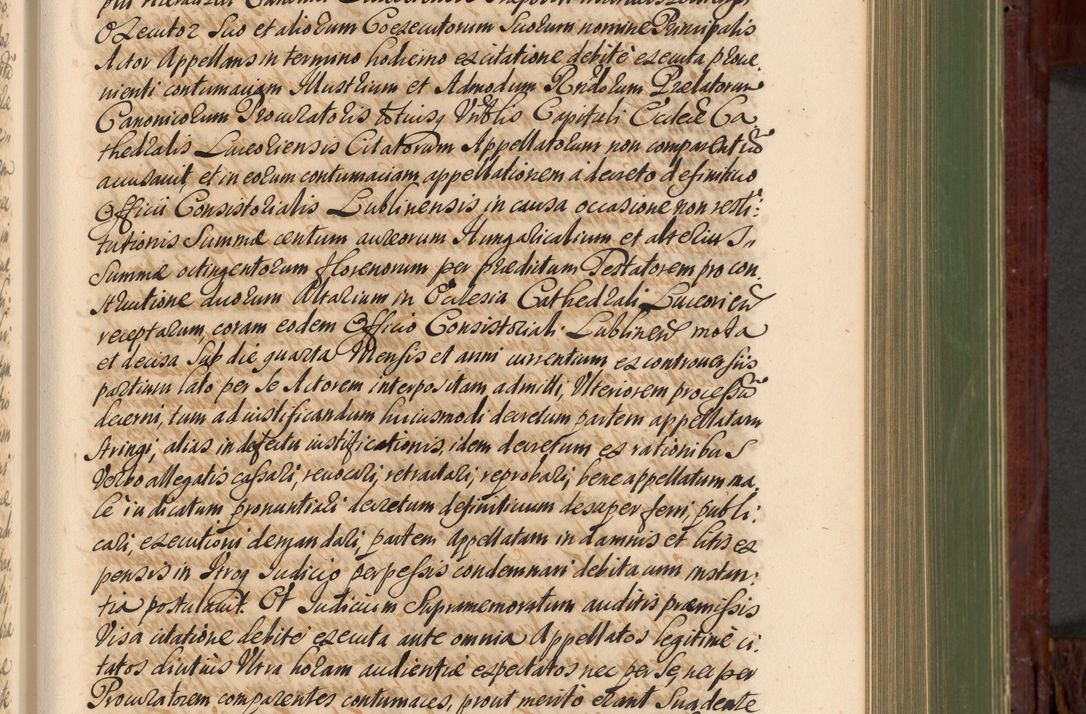 Executor Suo et aliorum Coexecutorum Suorum nomine Principalis
Actor Appellans in termino hodierno ex citatione debitè executa prove,
nienti contumaciam Illustrium et Admodum Rndorum Prælatorum
Canonicorum Procuratoris totiusq Vnblis Capituli Ecclæ Ca
thedralis Luceoriensis Citatorum Appellatorum non comparentiũ
accusavit, et in eorum contumaciam appellationem a decreto definitivo
Officii Consistorialis Lublinensis in causa occasione non resti:
tutionis Summæ centum aureorum Hungaricalium et alterius
Summæ octingentorum florenorum per prædictum Testatorem pro con,
structione duorum Altarium in Ecclesia Cathedrali Luceorien
receptarum, coram eodem Officio Consistoriali Lublinen mota
et decisa Sub die quarta Mensis et anni currentium ex controversiis
partium lato per se Actorem interpositam admitti, Ulteriorem processũ
decerni, tum ad iustificandum huiusmodi decretum partem appellatam
stringi, alias in defectu iustificationis, idem decretum ex rationibus
Verbo allegatis cassari, revocari, retractari, reprobari, bene appellatum ma,
lè iudicatum pronuntiari decretum definitivum desuper ferri, publi:
cari, executioni demandari, partem Appellatam in damnis et litis ex
pensis in Utroq Iudicio perpessis condemnari debita cum instan:
tia postulavit. Et Iudicium Supramemoratum auditis præmissis
Visa citatione debitè executa ante omnia Appellatos legitimè ci:
tatos diutiùs Ultra horam audientiæ expectatos nec per se nec per
Procuratorem comparentes contumaces, prout meritò erant Suadente